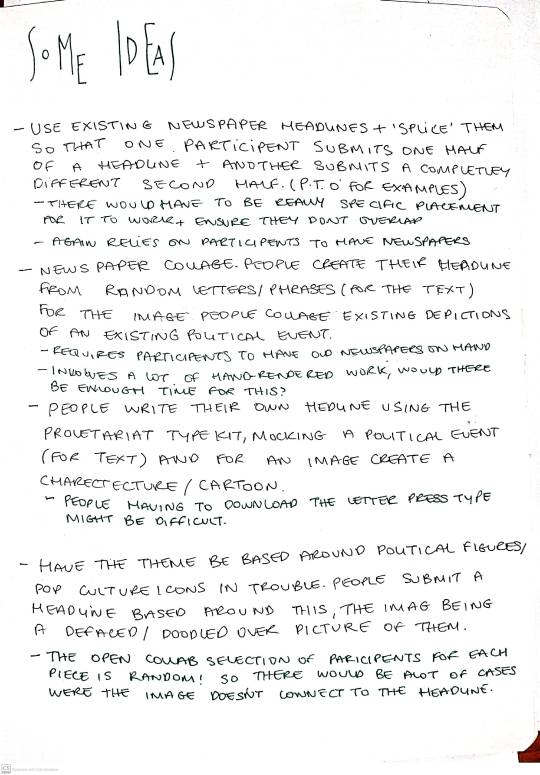 SOME IDEAS
- USE EXISTING NEWSPAPER HEADLINES + 'SPLICE' THEM
SO THAT ONE PARTICIPENT SUBMITS ONE HALF
OF A HEADLINE + ANOTHER SUBMITS A COMPLETLEY
DIFFERENT SECOND HALF. (P.T.O FOR EXAMPLES)
- THERE WOULD HAVE TO BE REALLY SPECIFIC PLACEMENT
FOR IT TO WORK + ENSURE THEY DONT OVERLAP
- AGAIN RELIES ON PARTICIPENTS TO HAVE NEWSPAPERS
- NEWS PAPER COLLAGE. PEOPLE CREATE THEIR HEADLINE
FROM RANDOM LETTERS/ PHRASES (FOR THE TEXT)
FOR THE IMAGE PEOPLE COLLAGE EXISTING DEPICTIONS
OF AN EXISTING POLITICAL EVENT.
- REQUIRES PARTICIPANTS TO HAVE OLD NEWSPAPERS ON HAND
- INVOLVES A LOT OF HAND-RENDERED WORK, WOULD THERE
BE ENOUGH TIME FOR THIS?
- PEOPLE WRITE THEIR OWN HEDLINE USING THE
PROLETARIAT TYPE KIT, MOCKING A POLITICAL EVENT
(FOR TEXT) AND FOR AN IMAGE CREATE A
CHARECTECTURE / CARTOON.
- PEOPLE HAVING TO DOWNLOAD THE LETTER PRESS TYPE
MIGHT BE DIFFICULT.
- HAVE THE THEME BE BASED AROUND POLITICAL FIGURES/
POP CULTURE ICONS IN TROUBLE. PEOPLE SUBMIT A
HEADLINE BASED AROUND THIS, THE IMAG BEING
A DEFACED / DOODLED OVER PICTURE OF THEM.
- THE OPEN COLLAB SELECTION OF PARICIPENTS FOR EACH
PIECE IS RANDOM! SO THERE WOULD BE ALOT OF CASES
WERE THE IMAGE DOESN'T CONNECT TO THE HEADLINE.
CS Scanned with CamScanner